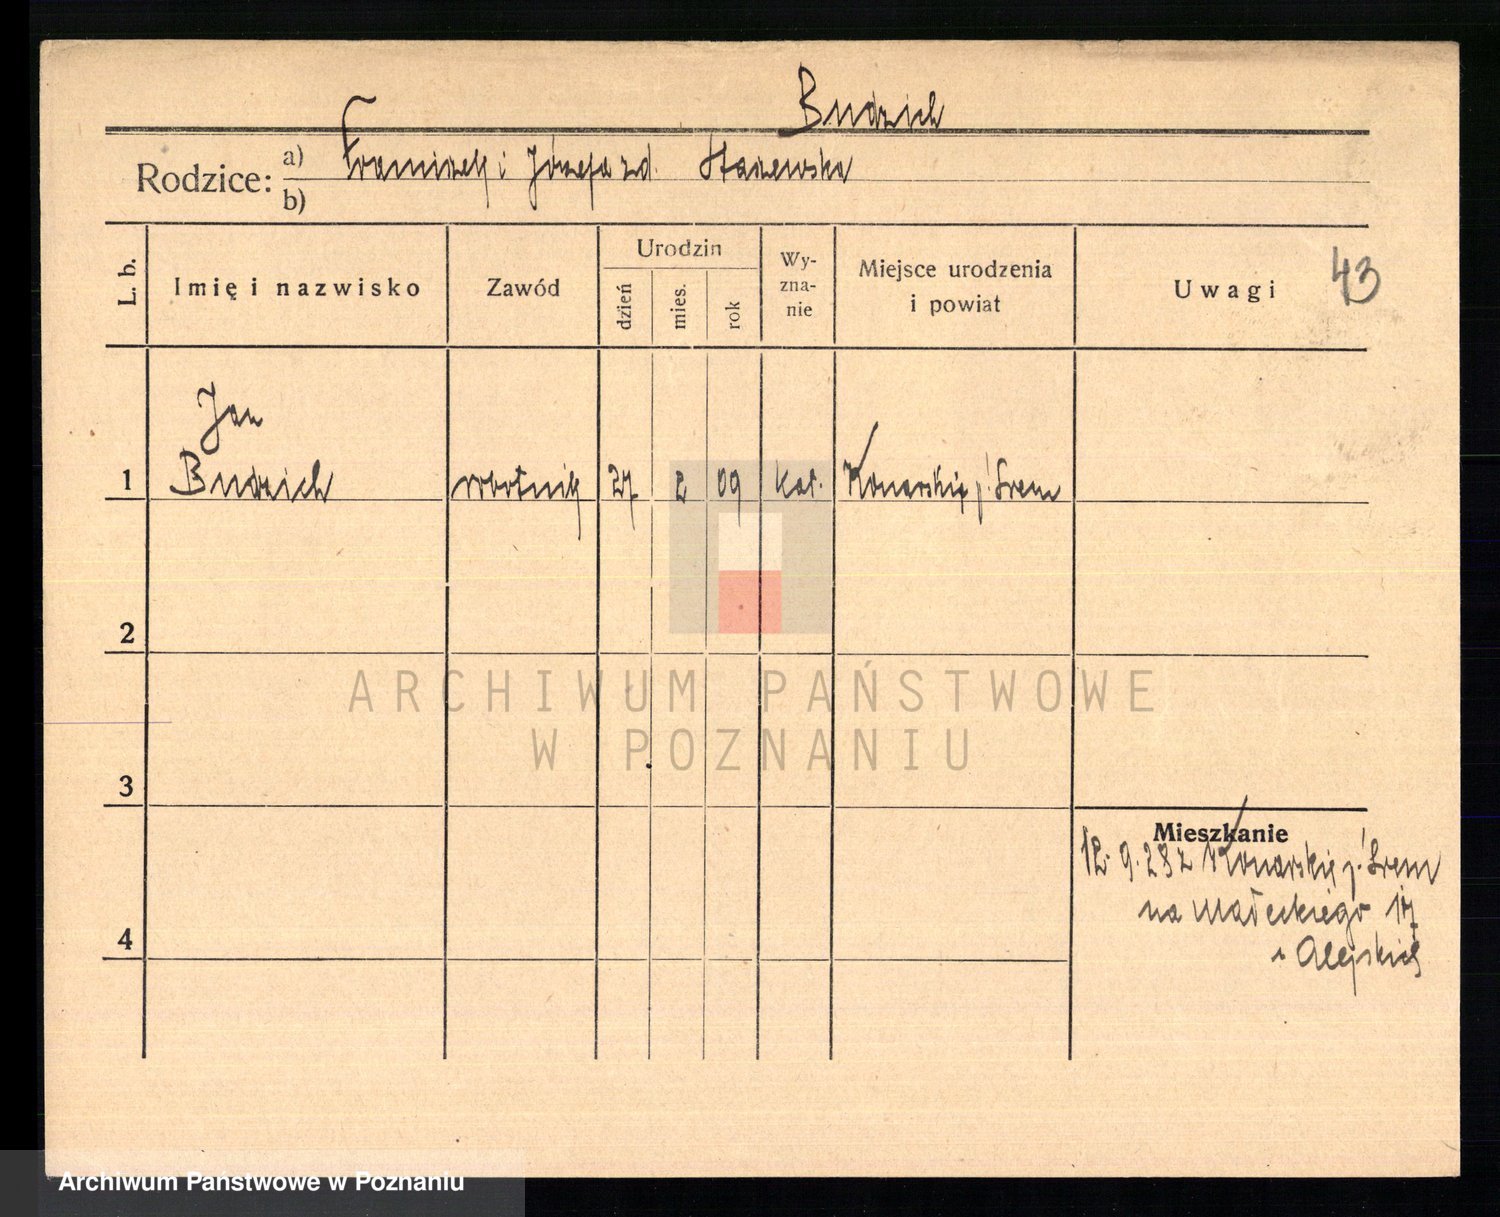 Budzich
Rodzice: a) Franciszek i Józefa zd. Staszewska
b)
L. b.
Imię i nazwisko
Zawód
Urodzin
dzień
mies.
rok
Wy-
zna-
nie
Miejsce urodzenia
i powiat
Uwagi
43
Jan
1 Budzich robotnik 27 2 09 kat. Konarskie p. Śrem
2
3
4
Mieszkanie
12. 9. 28 z Konarskie p. Śrem
na Małeckiego 17
ARCHIWUM PAŃSTWOWE
W POZNANIU
Archiwum Państwowe w Poznaniu